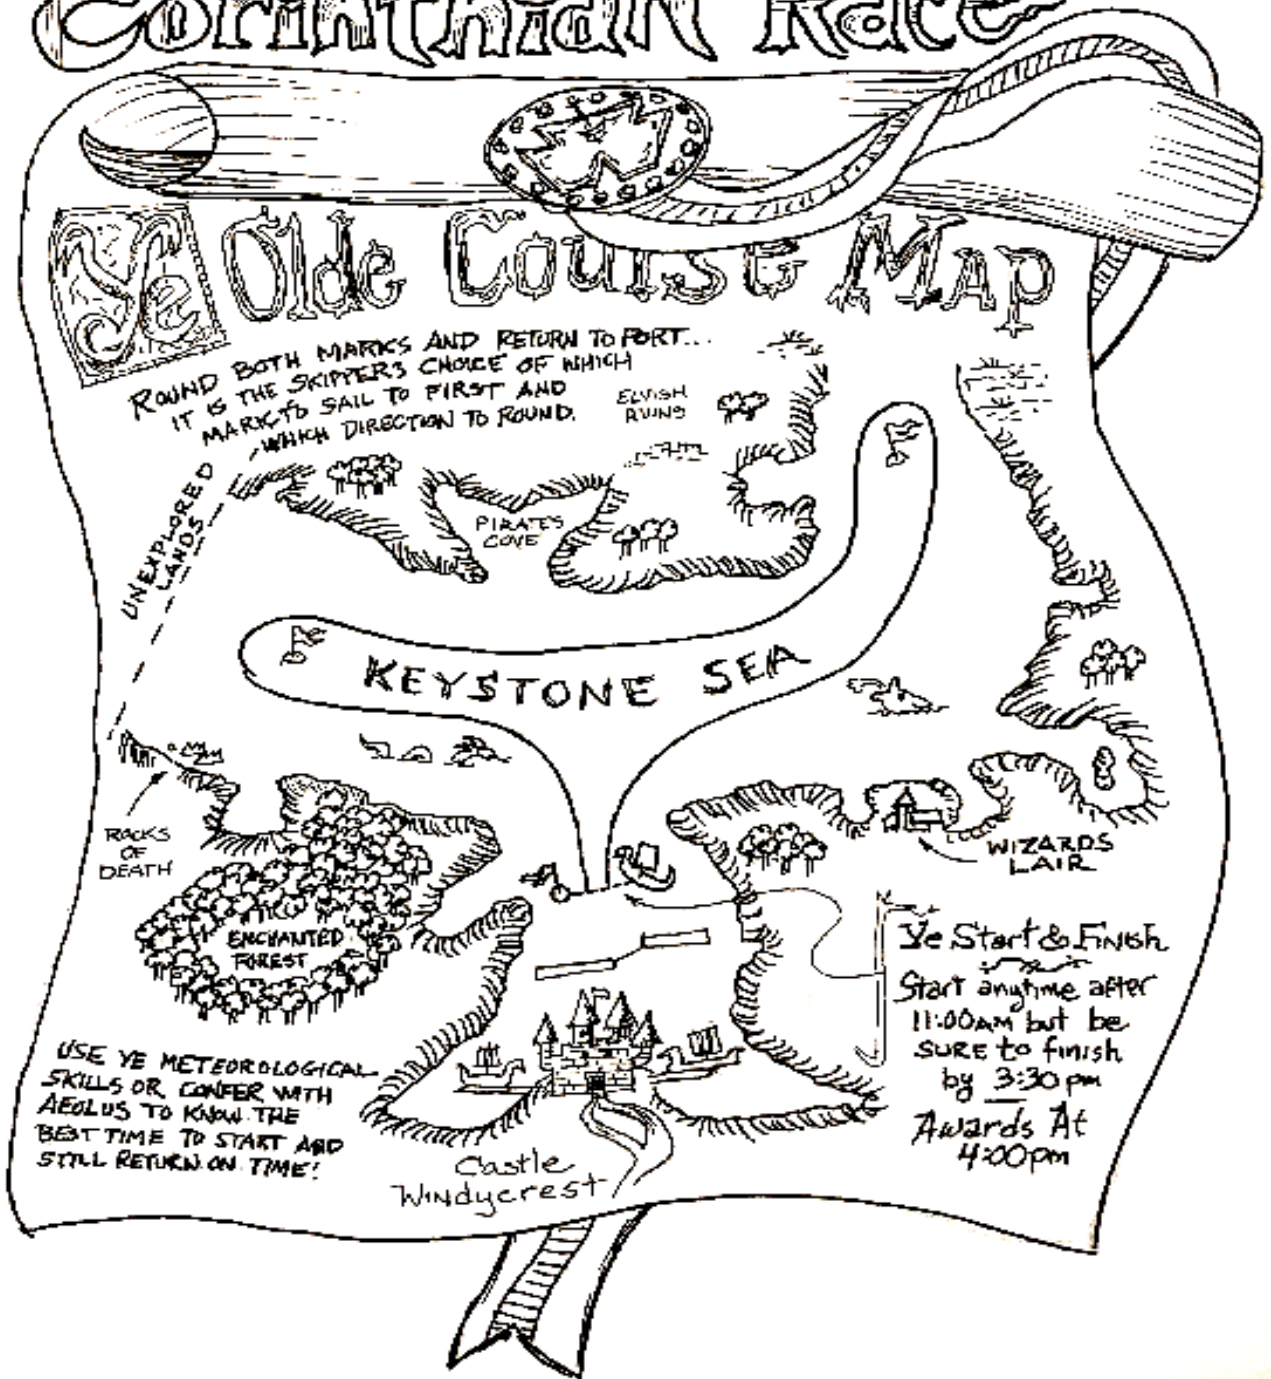 Corinthian Race
Ye Olde Course Map
ROUND BOTH MARKS AND RETURN TO PORT...
IT IS THE SKIPPERS CHOICE OF WHICH
MARK TO SAIL TO FIRST AND
WHICH DIRECTION TO ROUND.
ELVISH
RUINS
UNEXPLORED
LANDS
PIRATES
COVE
KEYSTONE SEA
ROCKS
OF
DEATH
WIZARDS
LAIR
ENCHANTED
FOREST
Ye Start & Finish
Start anytime after
11:00AM but be
SURE to finish
by 3:30pm
Awards At
4:00pm
USE YE METEOROLOGICAL
SKILLS OR CONFER WITH
AEOLUS TO KNOW THE
BEST TIME TO START AND
STILL RETURN ON TIME!
Castle
Windycrest